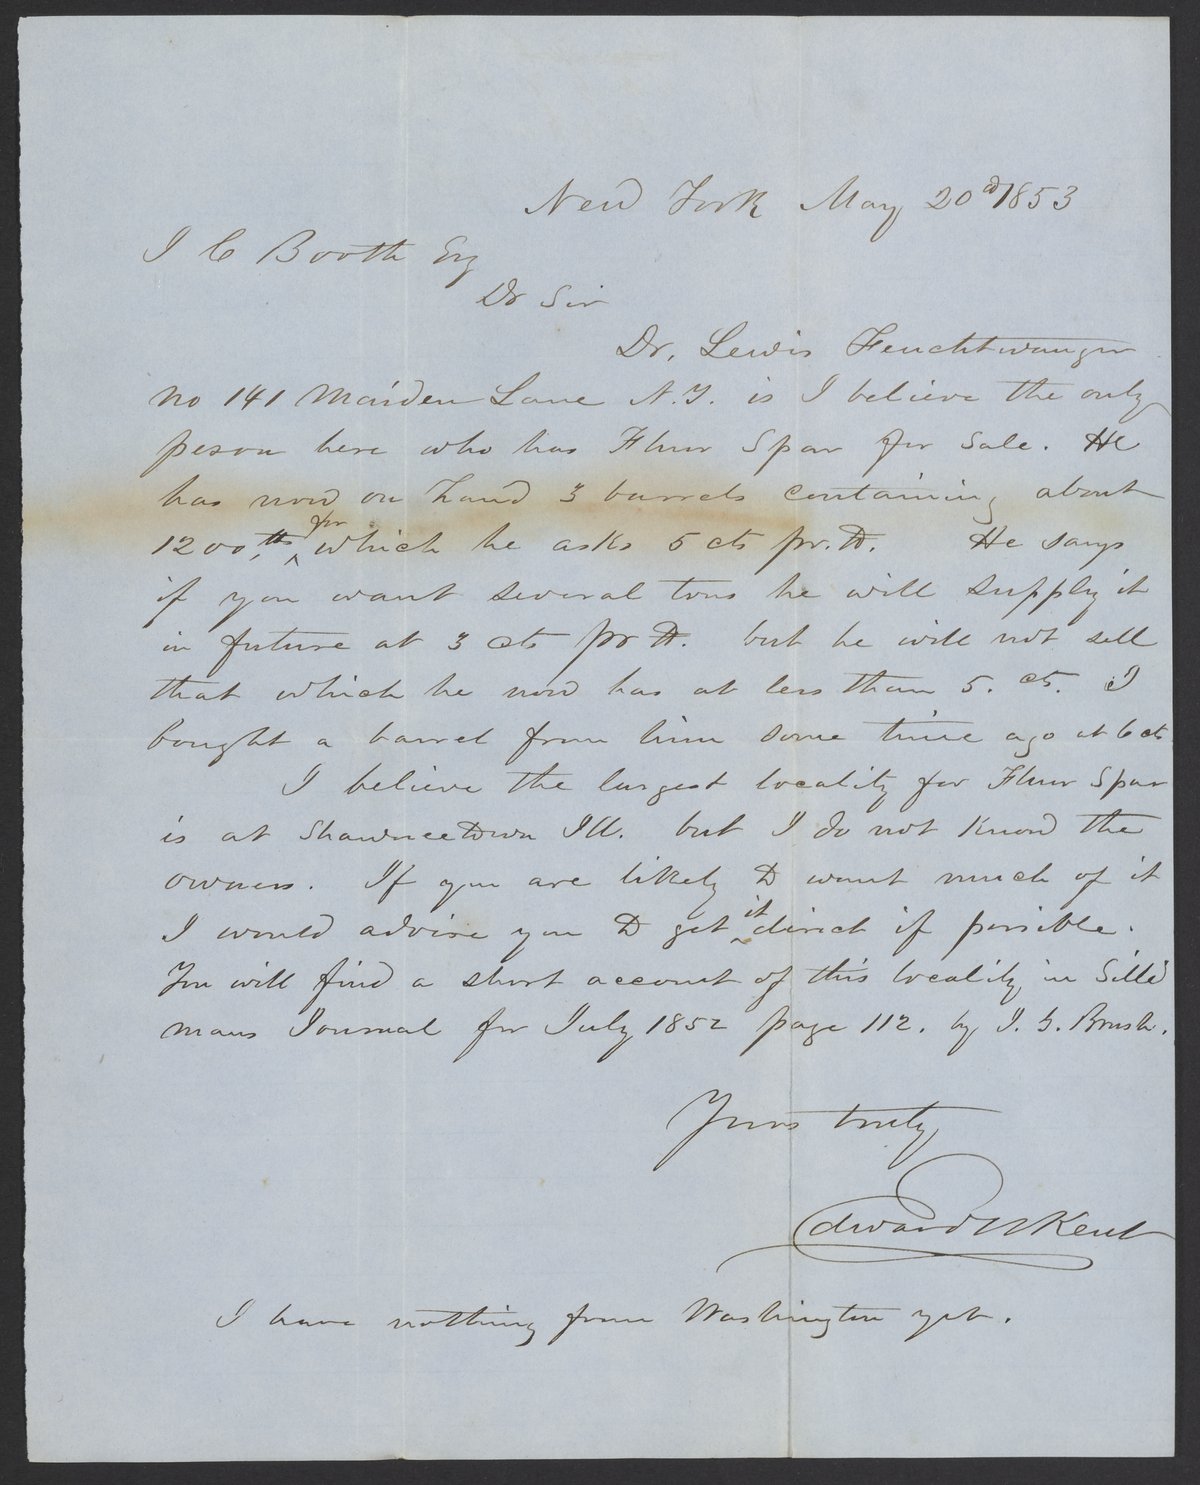 New York May 20th 1853
J C Booth Esq
Dr Sir
Dr. Lewis Feuchtwanger
No 141 Maiden Lane N.Y. is I believe the only
person here who has Fluor Spar for sale. He
has now on hand 3 barrels containing about
1200 lbs for which he asks 5 cts pr. lb. He says
if you want several tons he will supply it
in future at 3 cts pr lb. but he will not sell
that which he now has at less than 5. cts. I
bought a barrel from him some time ago at 6 cts
I believe the largest locality for Fluor Spar
is at Shawneetown Ill. but I do not know the
owners. If you are likely to want much of it
I would advise you to get it direct if possible.
You will find a short account of this locality in Silli
mans Journal for July 1852 page 112. by J. G. Brush.
Yours truly
Edward N Kent
I have nothing from Washington yet.